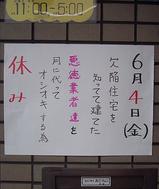 11:00-5:00
6月4日(金)
欠陥住宅を
知ってて建てた
悪徳業者達を
月に代って
オシオキする為
休み